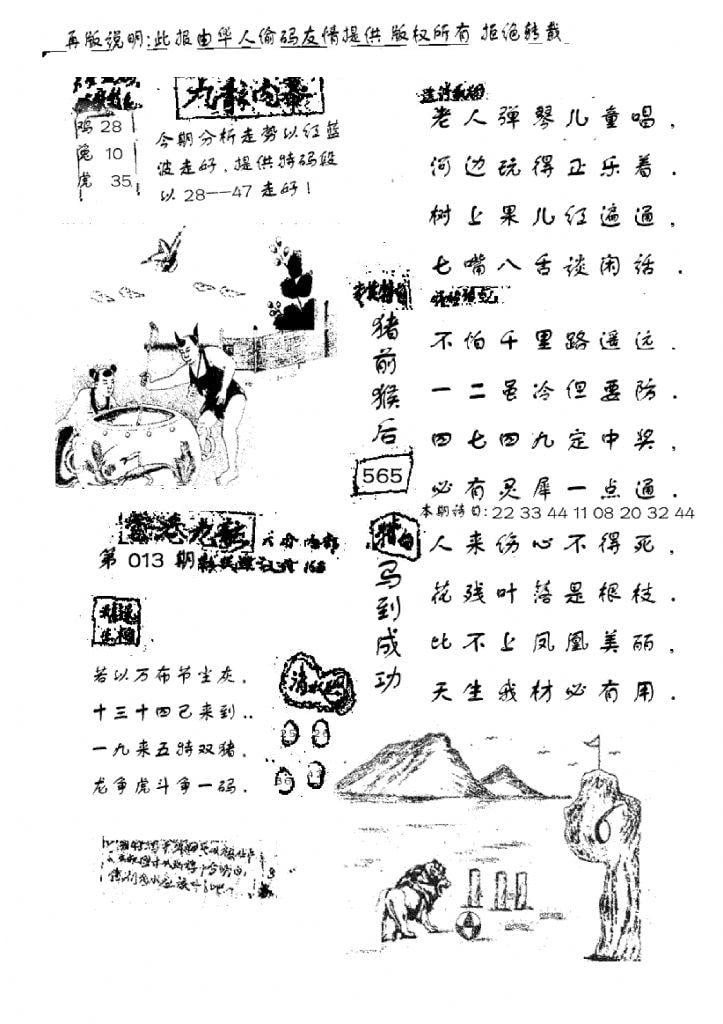 再版说明:此报由华人偷码友情提供 版权所有 拒绝转载
九龙内幕
鸡 28
兔 10
虎 35
今期分析走势以红蓝
波走好，提供特码段
以28——47走好！
老人弹琴儿童唱，
河边玩得正乐着．
树上果儿红遍通，
七嘴八舌谈闲话．
猪前猴后
565
不怕千里路遥远．
一二虽冷但要防．
四七四九定中奖，
必有灵犀一点通．
本期诗曰: 22 33 44 11 08 20 32 44
马到成功
人来伤心不得死，
花残叶落是根枝．
比不上凤凰美丽，
天生我材必有用．
第013期
若以万布节尘灰，
十三十四已来到..
一九来五特双猪，
龙争虎斗争一码．